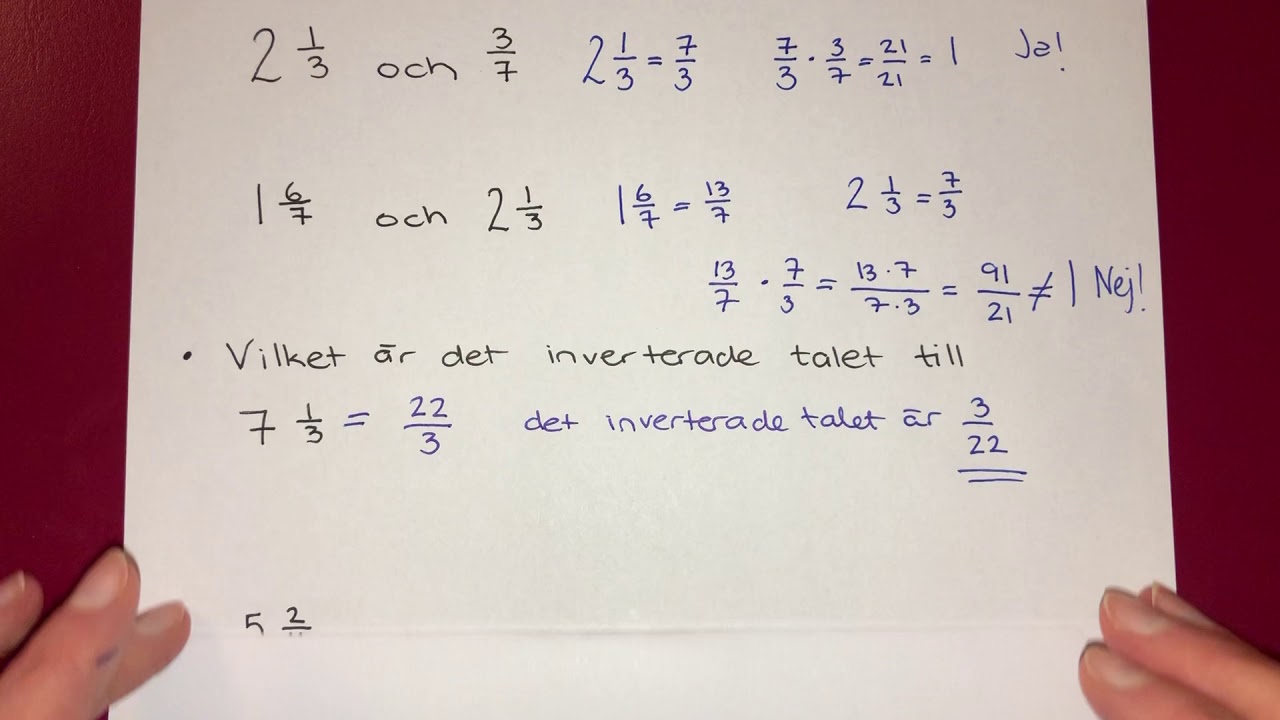 2 1/3 och 3/7 2 1/3 = 7/3 7/3 · 3/7 = 21/21 = 1 Ja!
1 6/7 och 2 1/3 1 6/7 = 13/7 2 1/3 = 7/3
13/7 · 7/3 = 13·7/7·3 = 91/21 ≠ 1 Nej!
• Vilket är det inverterade talet till
7 1/3 = 22/3 det inverterade talet är 3/22
5 2